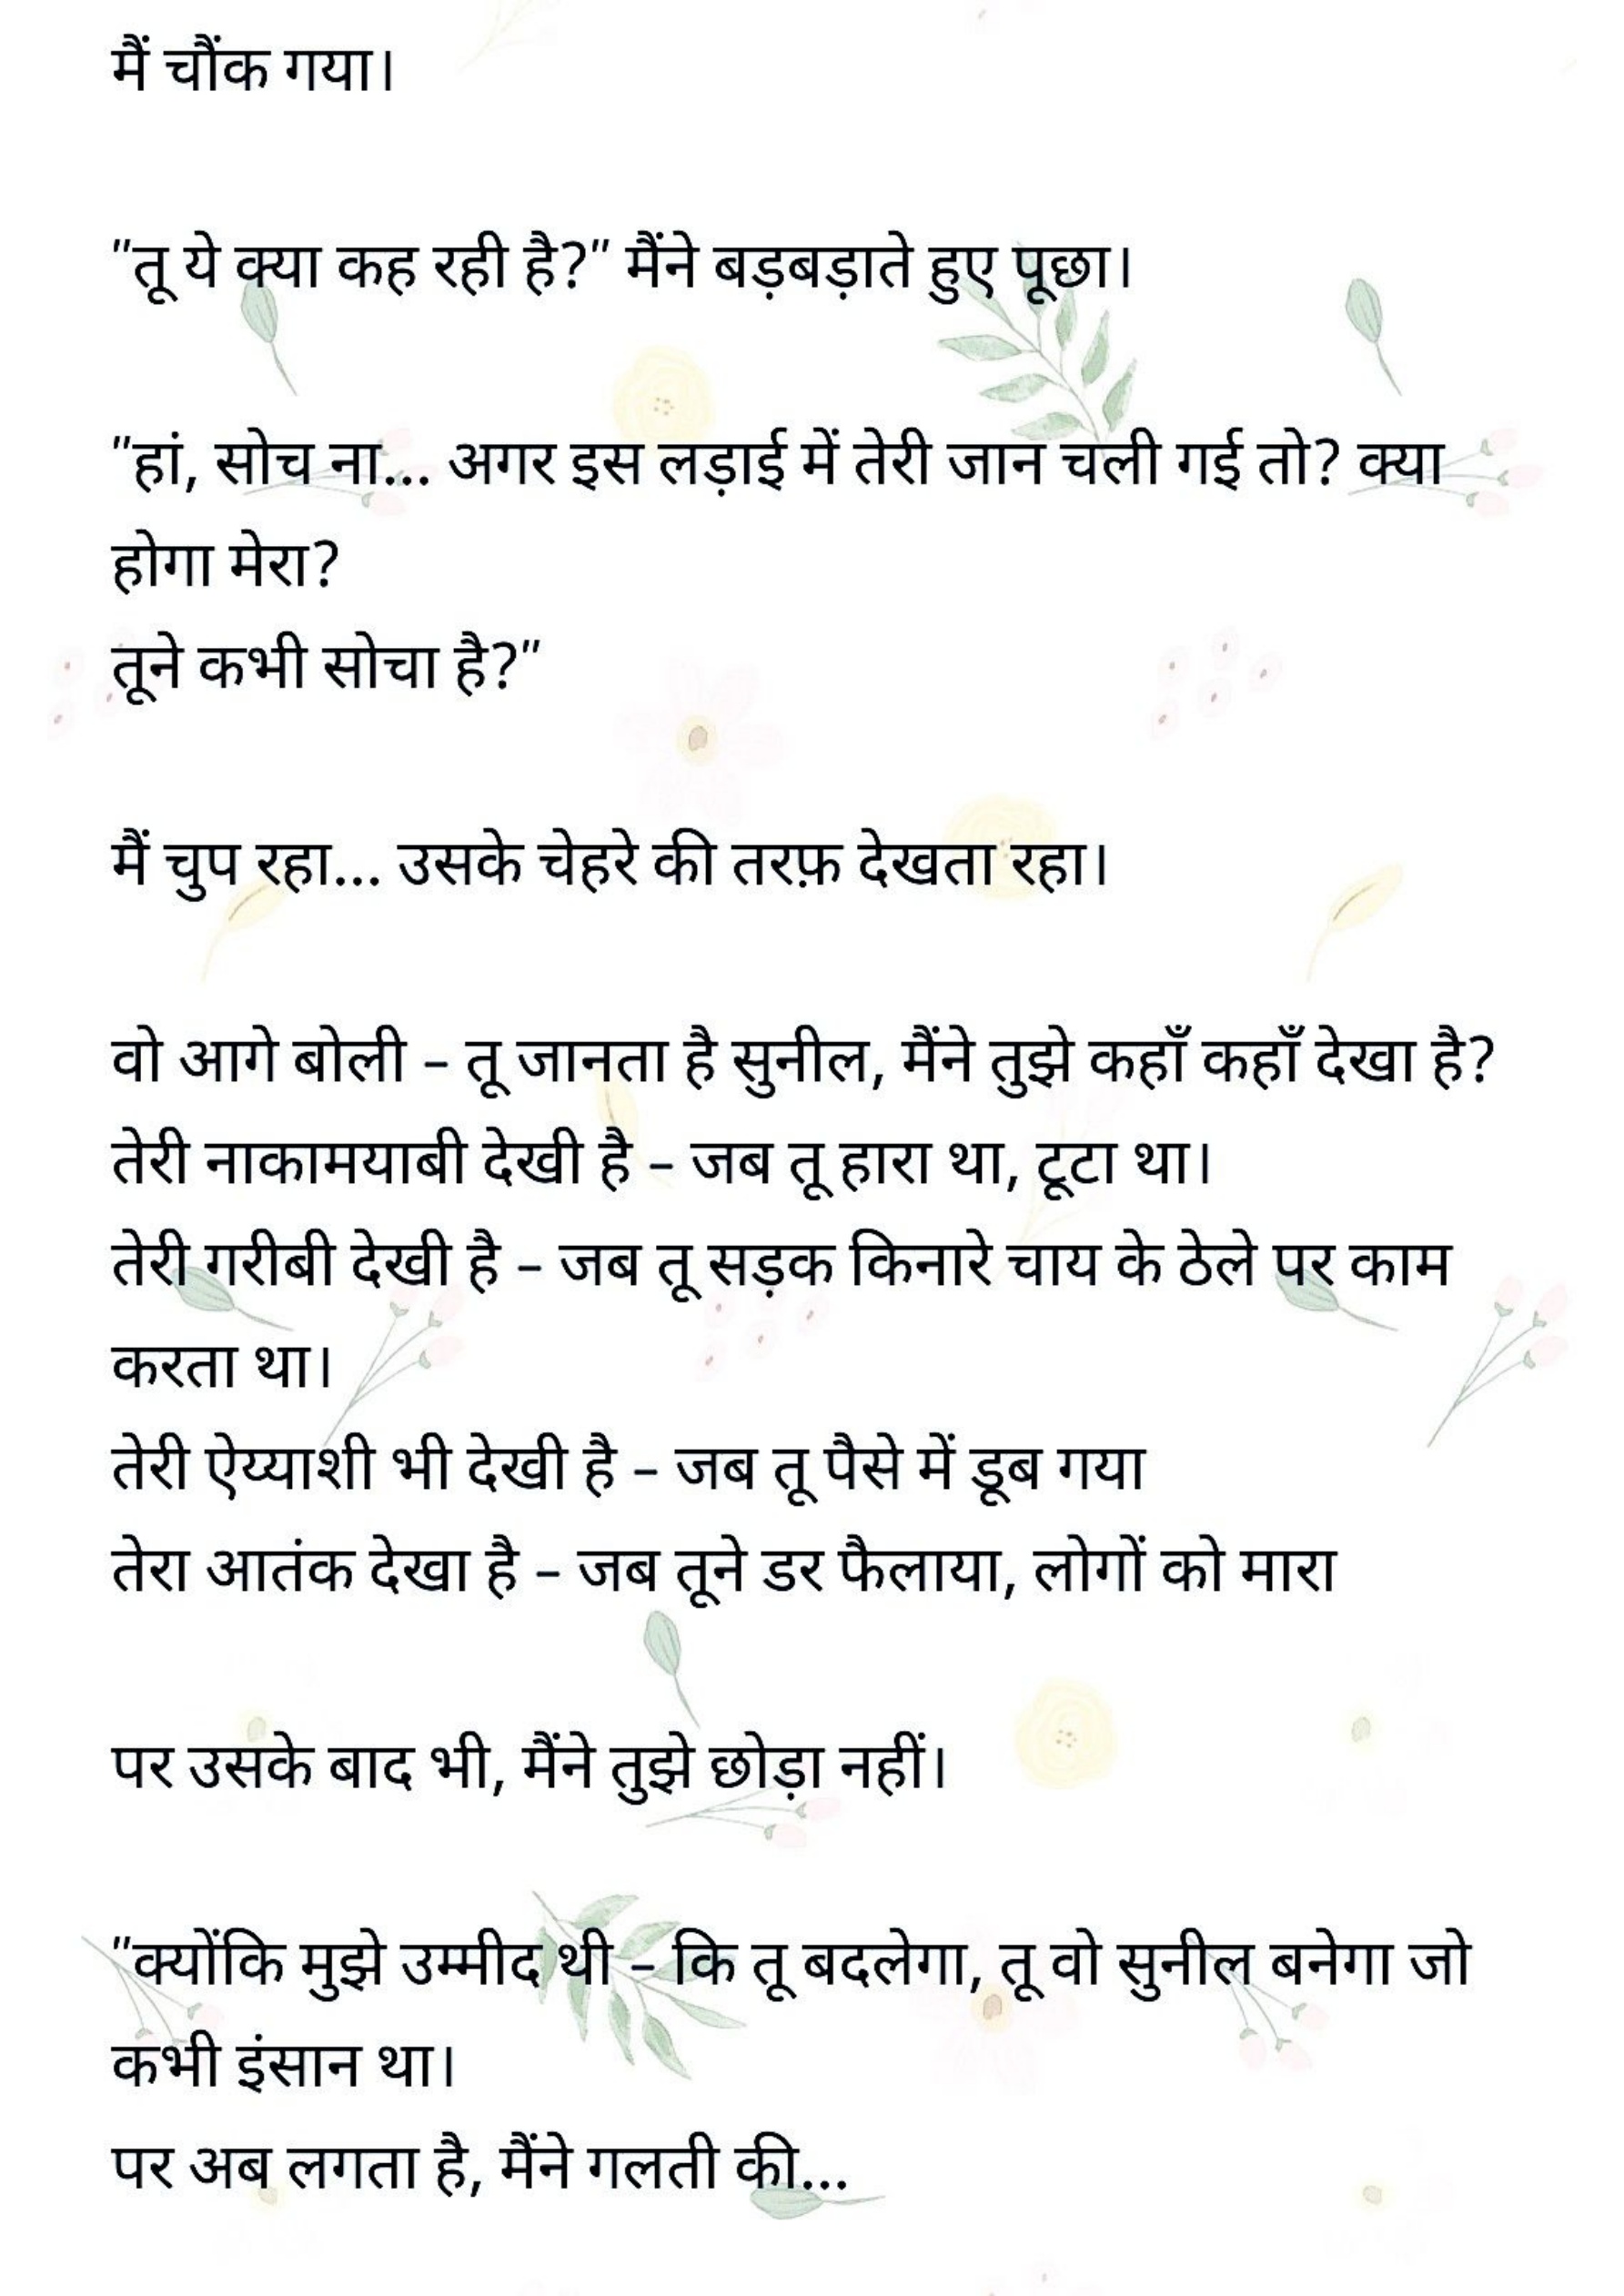 मैं चौंक गया।
"तू ये क्या कह रही है?" मैंने बड़बड़ाते हुए पूछा।
"हां, सोच ना... अगर इस लड़ाई में तेरी जान चली गई तो? क्या
होगा मेरा?
तूने कभी सोचा है?"
मैं चुप रहा... उसके चेहरे की तरफ़ देखता रहा।
वो आगे बोली – तू जानता है सुनील, मैंने तुझे कहाँ कहाँ देखा है?
तेरी नाकामयाबी देखी है – जब तू हारा था, टूटा था।
तेरी गरीबी देखी है – जब तू सड़क किनारे चाय के ठेले पर काम
करता था।
तेरी ऐय्याशी भी देखी है – जब तू पैसे में डूब गया
तेरा आतंक देखा है – जब तूने डर फैलाया, लोगों को मारा
पर उसके बाद भी, मैंने तुझे छोड़ा नहीं।
"क्योंकि मुझे उम्मीद थी – कि तू बदलेगा, तू वो सुनील बनेगा जो
कभी इंसान था।
पर अब लगता है, मैंने गलती की...